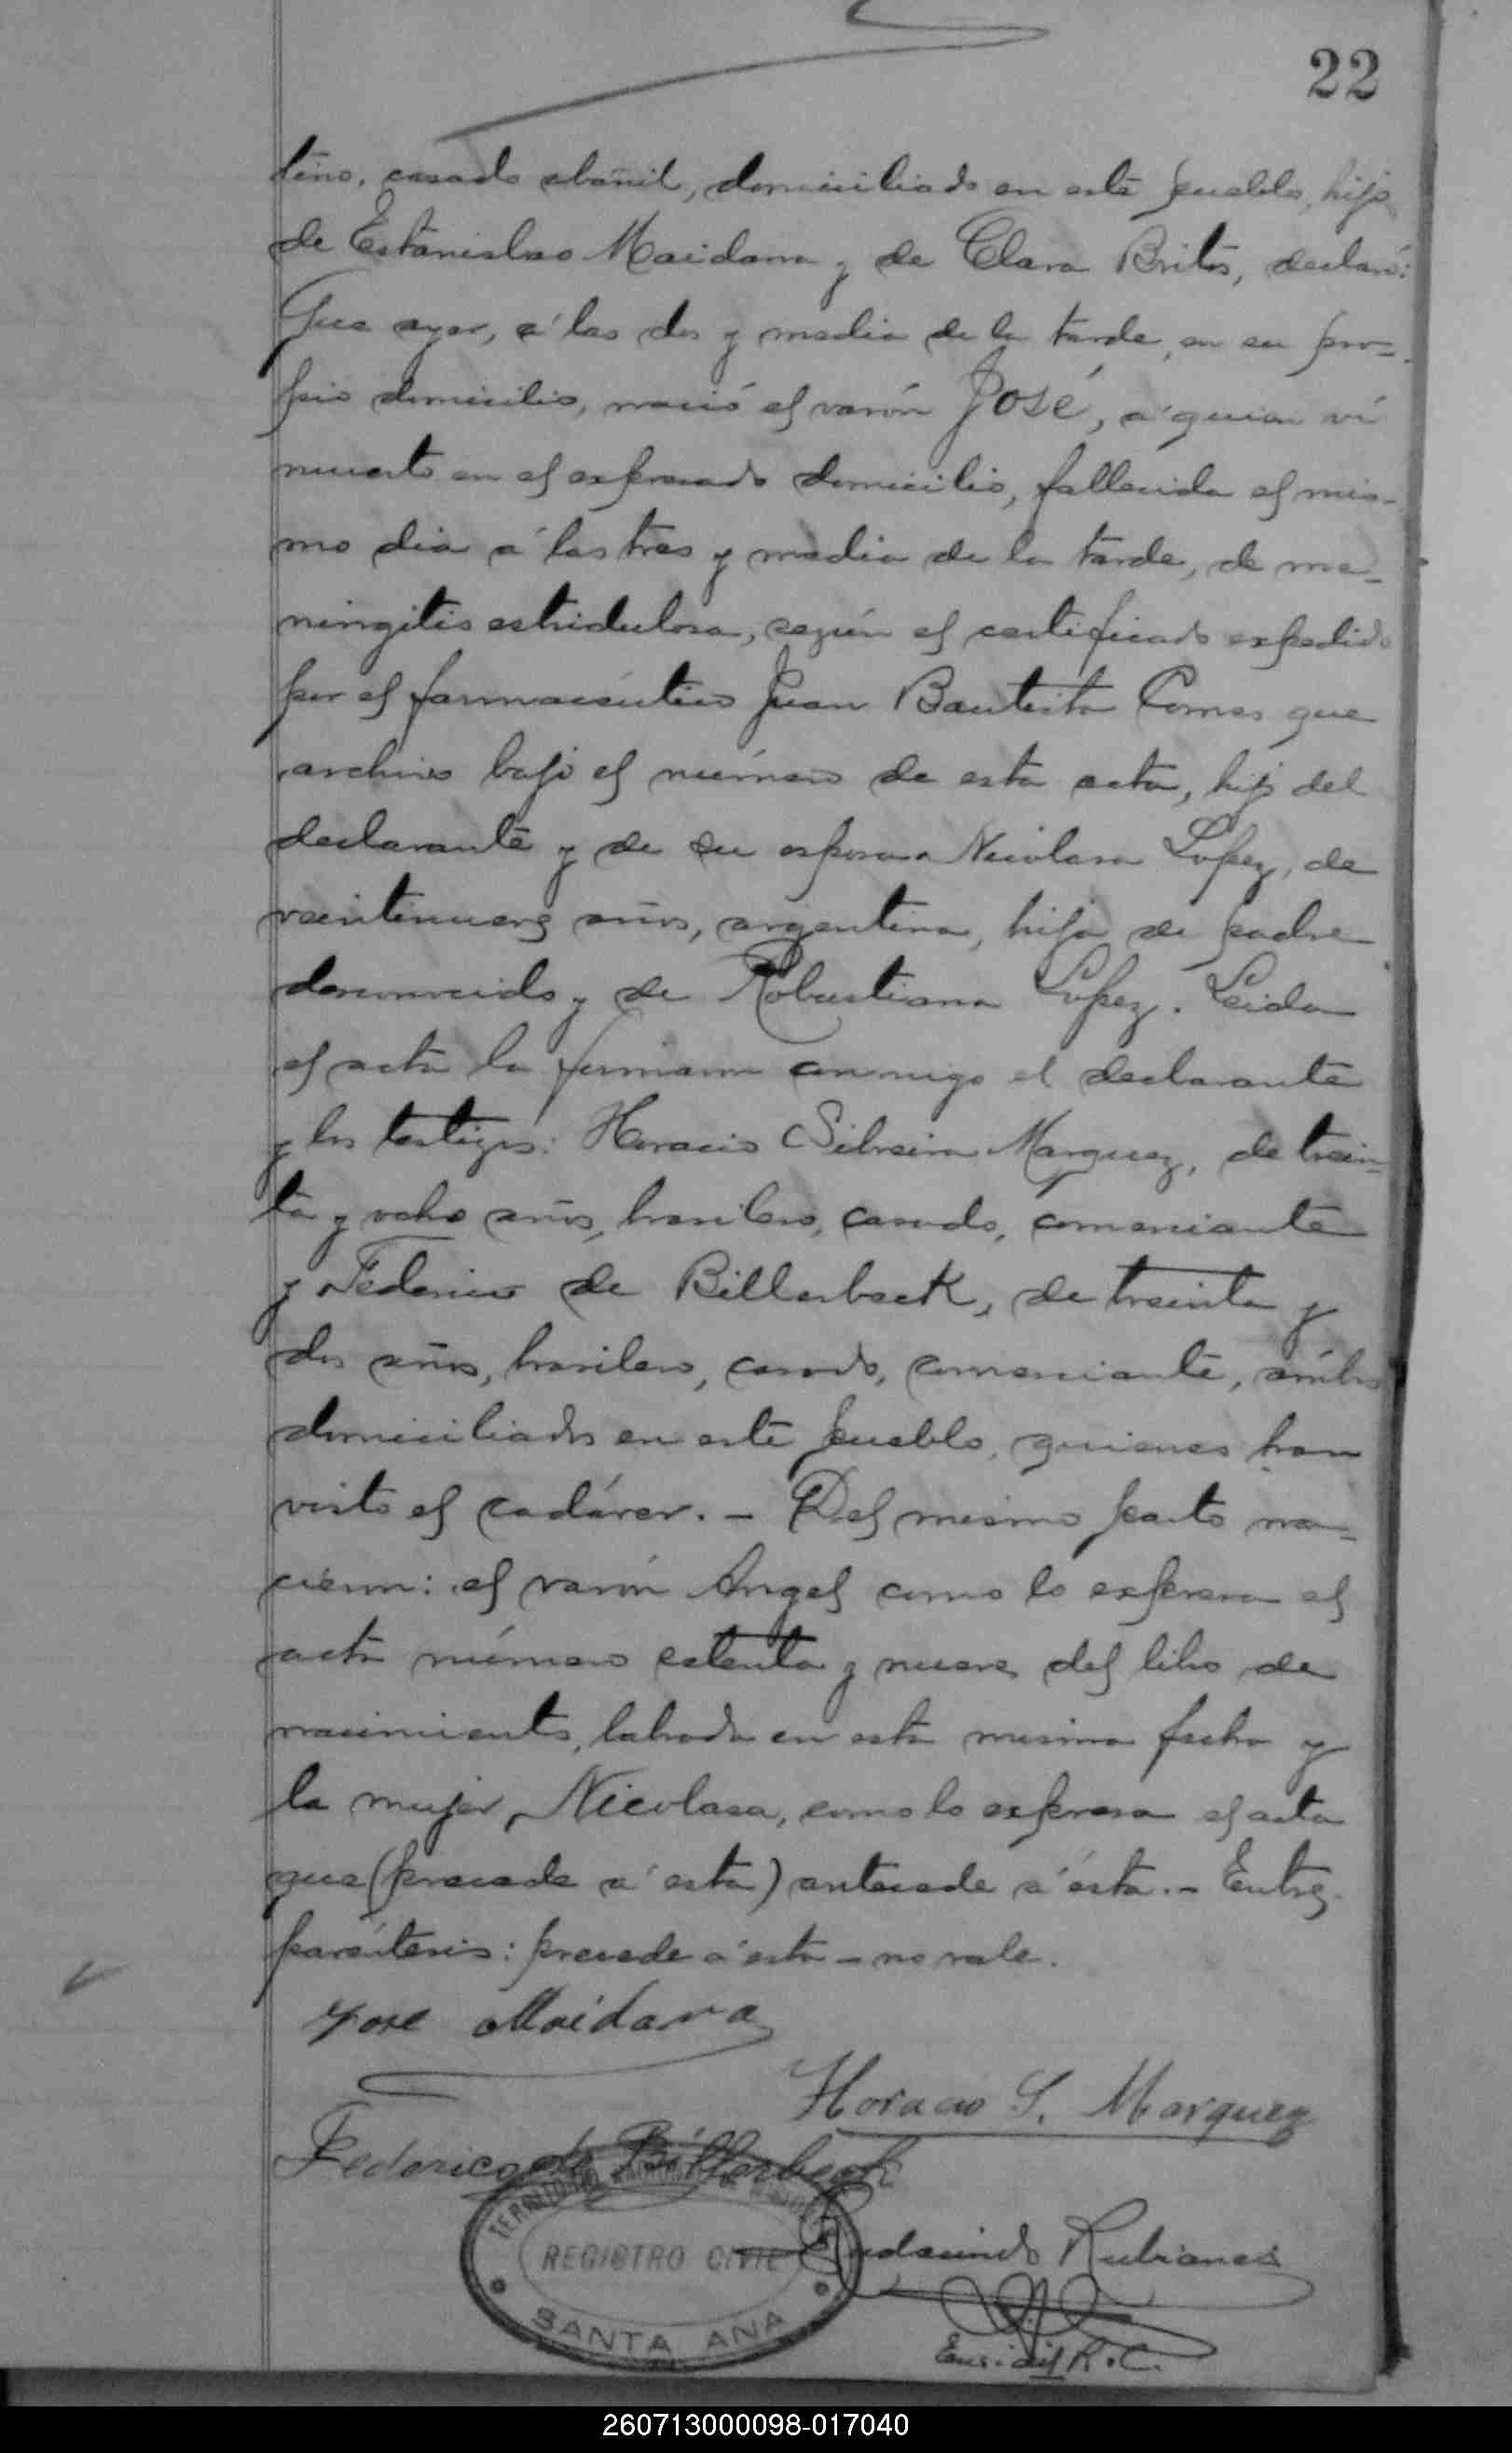 22
tino, casado albañil, domiciliado en este pueblo, hijo
de Estanislao Maidana y de Clara Brites, declaró:
Que ayer, á las dos y media de la tarde, en su pro-
pio domicilio, nació el varón José, á quien ví
muerto en el expresado domicilio, fallecida el mis-
mo dia á las tres y media de la tarde, de me-
ningitis estridulosa, según el certificado expedido
por el farmacéutico Juan Bautista Comes que
archivo bajo el número de esta acta, hijo del
declarante y de su esposa Nicolasa Lopez, de
veintinueve años, argentina, hija de padre
desconocido y de Robustiana Lopez. Leida
el acta la firmaron conmigo el declarante
y los testigos: Horacio Silveira Marquez, de trein-
ta y ocho años, brasilero, casado, comerciante
y Federico de Billerbeck, de treinta y
dos años, brasilero, casado, comerciante, ámbos
domiciliados en este pueblo, quienes han
visto el cadáver. - Del mismo parto na-
cieron: el varón Angel como lo expresa el
acta número setenta y nueve del libro de
nacimiento, labrada en esta misma fecha y
la mujer, Nicolasa, como lo expresa el acta
que (precede á esta) antecede á ésta. - Entre
paréntesis: precede á esta - no vale.
José Maidana
Horacio S. Marquez
Federico de Billerbeck
TERRITORIO
REGISTRO CIVIL
SANTA ANA
Rudecindo Rubianes
Enc. del R. C.
260713000098-017040